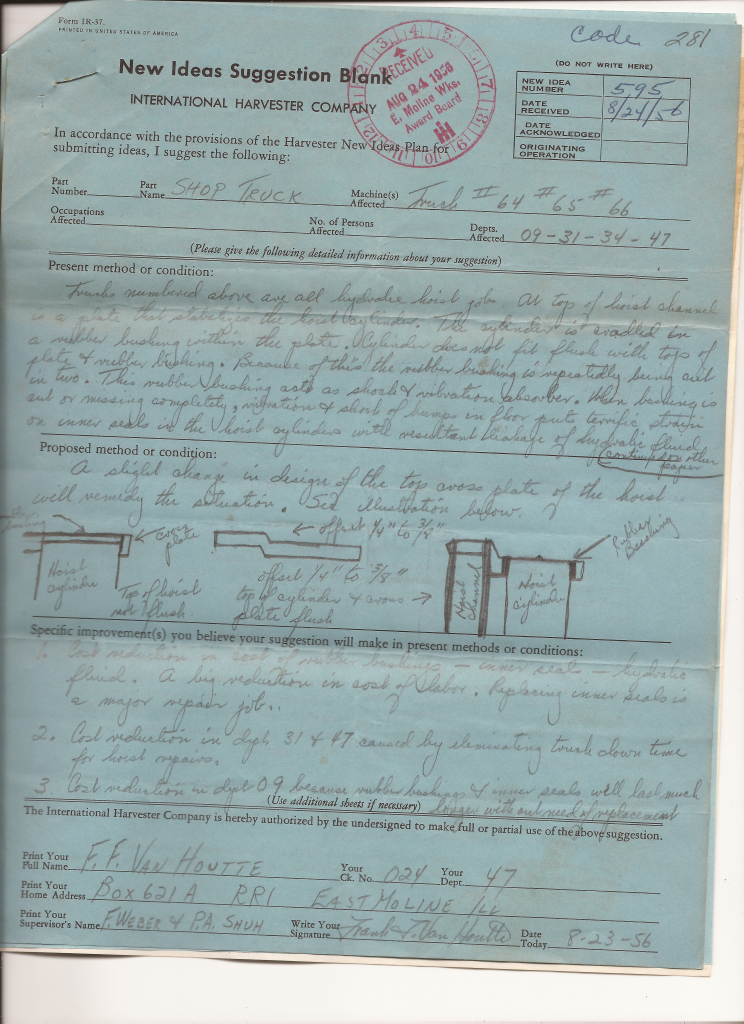 Form IR-37.
PRINTED IN UNITED STATES OF AMERICA
Code 281
New Ideas Suggestion Blank
INTERNATIONAL HARVESTER COMPANY
RECEIVED
AUG 24 1956
E. Moline Wks.
Award Board
(DO NOT WRITE HERE)
NEW IDEA NUMBER 595
DATE RECEIVED 8/24/56
DATE ACKNOWLEDGED
ORIGINATING OPERATION
In accordance with the provisions of the Harvester New Ideas Plan for
submitting ideas, I suggest the following:
Part Number Part Name SHOP TRUCK Machine(s) Affected Truck # 64 # 65 # 66
Occupations Affected No. of Persons Affected Depts. Affected 09-31-34-47
(Please give the following detailed information about your suggestion)
Present method or condition:
Trucks numbered above are all hydralic hoist jobs. At top of hoist channel
is a plate that stabilizes the hoist cylinder. The cylinder is cradled in
a rubber bushing within the plate. Cylinder does not fit flush with top of
plate & rubber bushing. Because of this the rubber bushing is repeatedly being cut
in two. This rubber bushing acts as shock & vibration absorber. When bushing is
cut or missing completely, vibration & shock of bumps in floor puts terrific strain
on inner seals in the hoist cylinders with resultant leakage of hydralic fluid
(continued on other
paper
Proposed method or condition:
A slight change in design of the top cross plate of the hoist
will remedy the situation. See illustration below.
cross plate
offset 1/4" to 3/8"
Rubber Bushing
Hoist cylinder
Top of hoist not flush
offset 1/4" to 3/8"
top of cylinder & cross plate flush
Hoist Channel
Hoist cylinder
Specific improvement(s) you believe your suggestion will make in present methods or conditions:
1. Cost reduction in cost of rubber bushings - inner seals - hydralic
fluid. A big reduction in cost of labor. Replacing inner seals is
a major repair job.
2. Cost reduction in dept 31 & 47 caused by eleminating truck down time
for hoist repairs.
3. Cost reduction in dept 09 because rubber bushings & inner seals will last much
(Use additional sheets if necessary) longer without need of replacement
The International Harvester Company is hereby authorized by the undersigned to make full or partial use of the above suggestion.
Print Your Full Name F. F. VAN HOUTTE Your Ck. No. 024 Your Dept. 47
Print Your Home Address BOX 621 A RR1 EAST MOLINE ILL
Print Your Supervisor's Name F. WEBER & P.A. SHUH Write Your Signature Frank F. Van Houtte Date Today 8-23-56